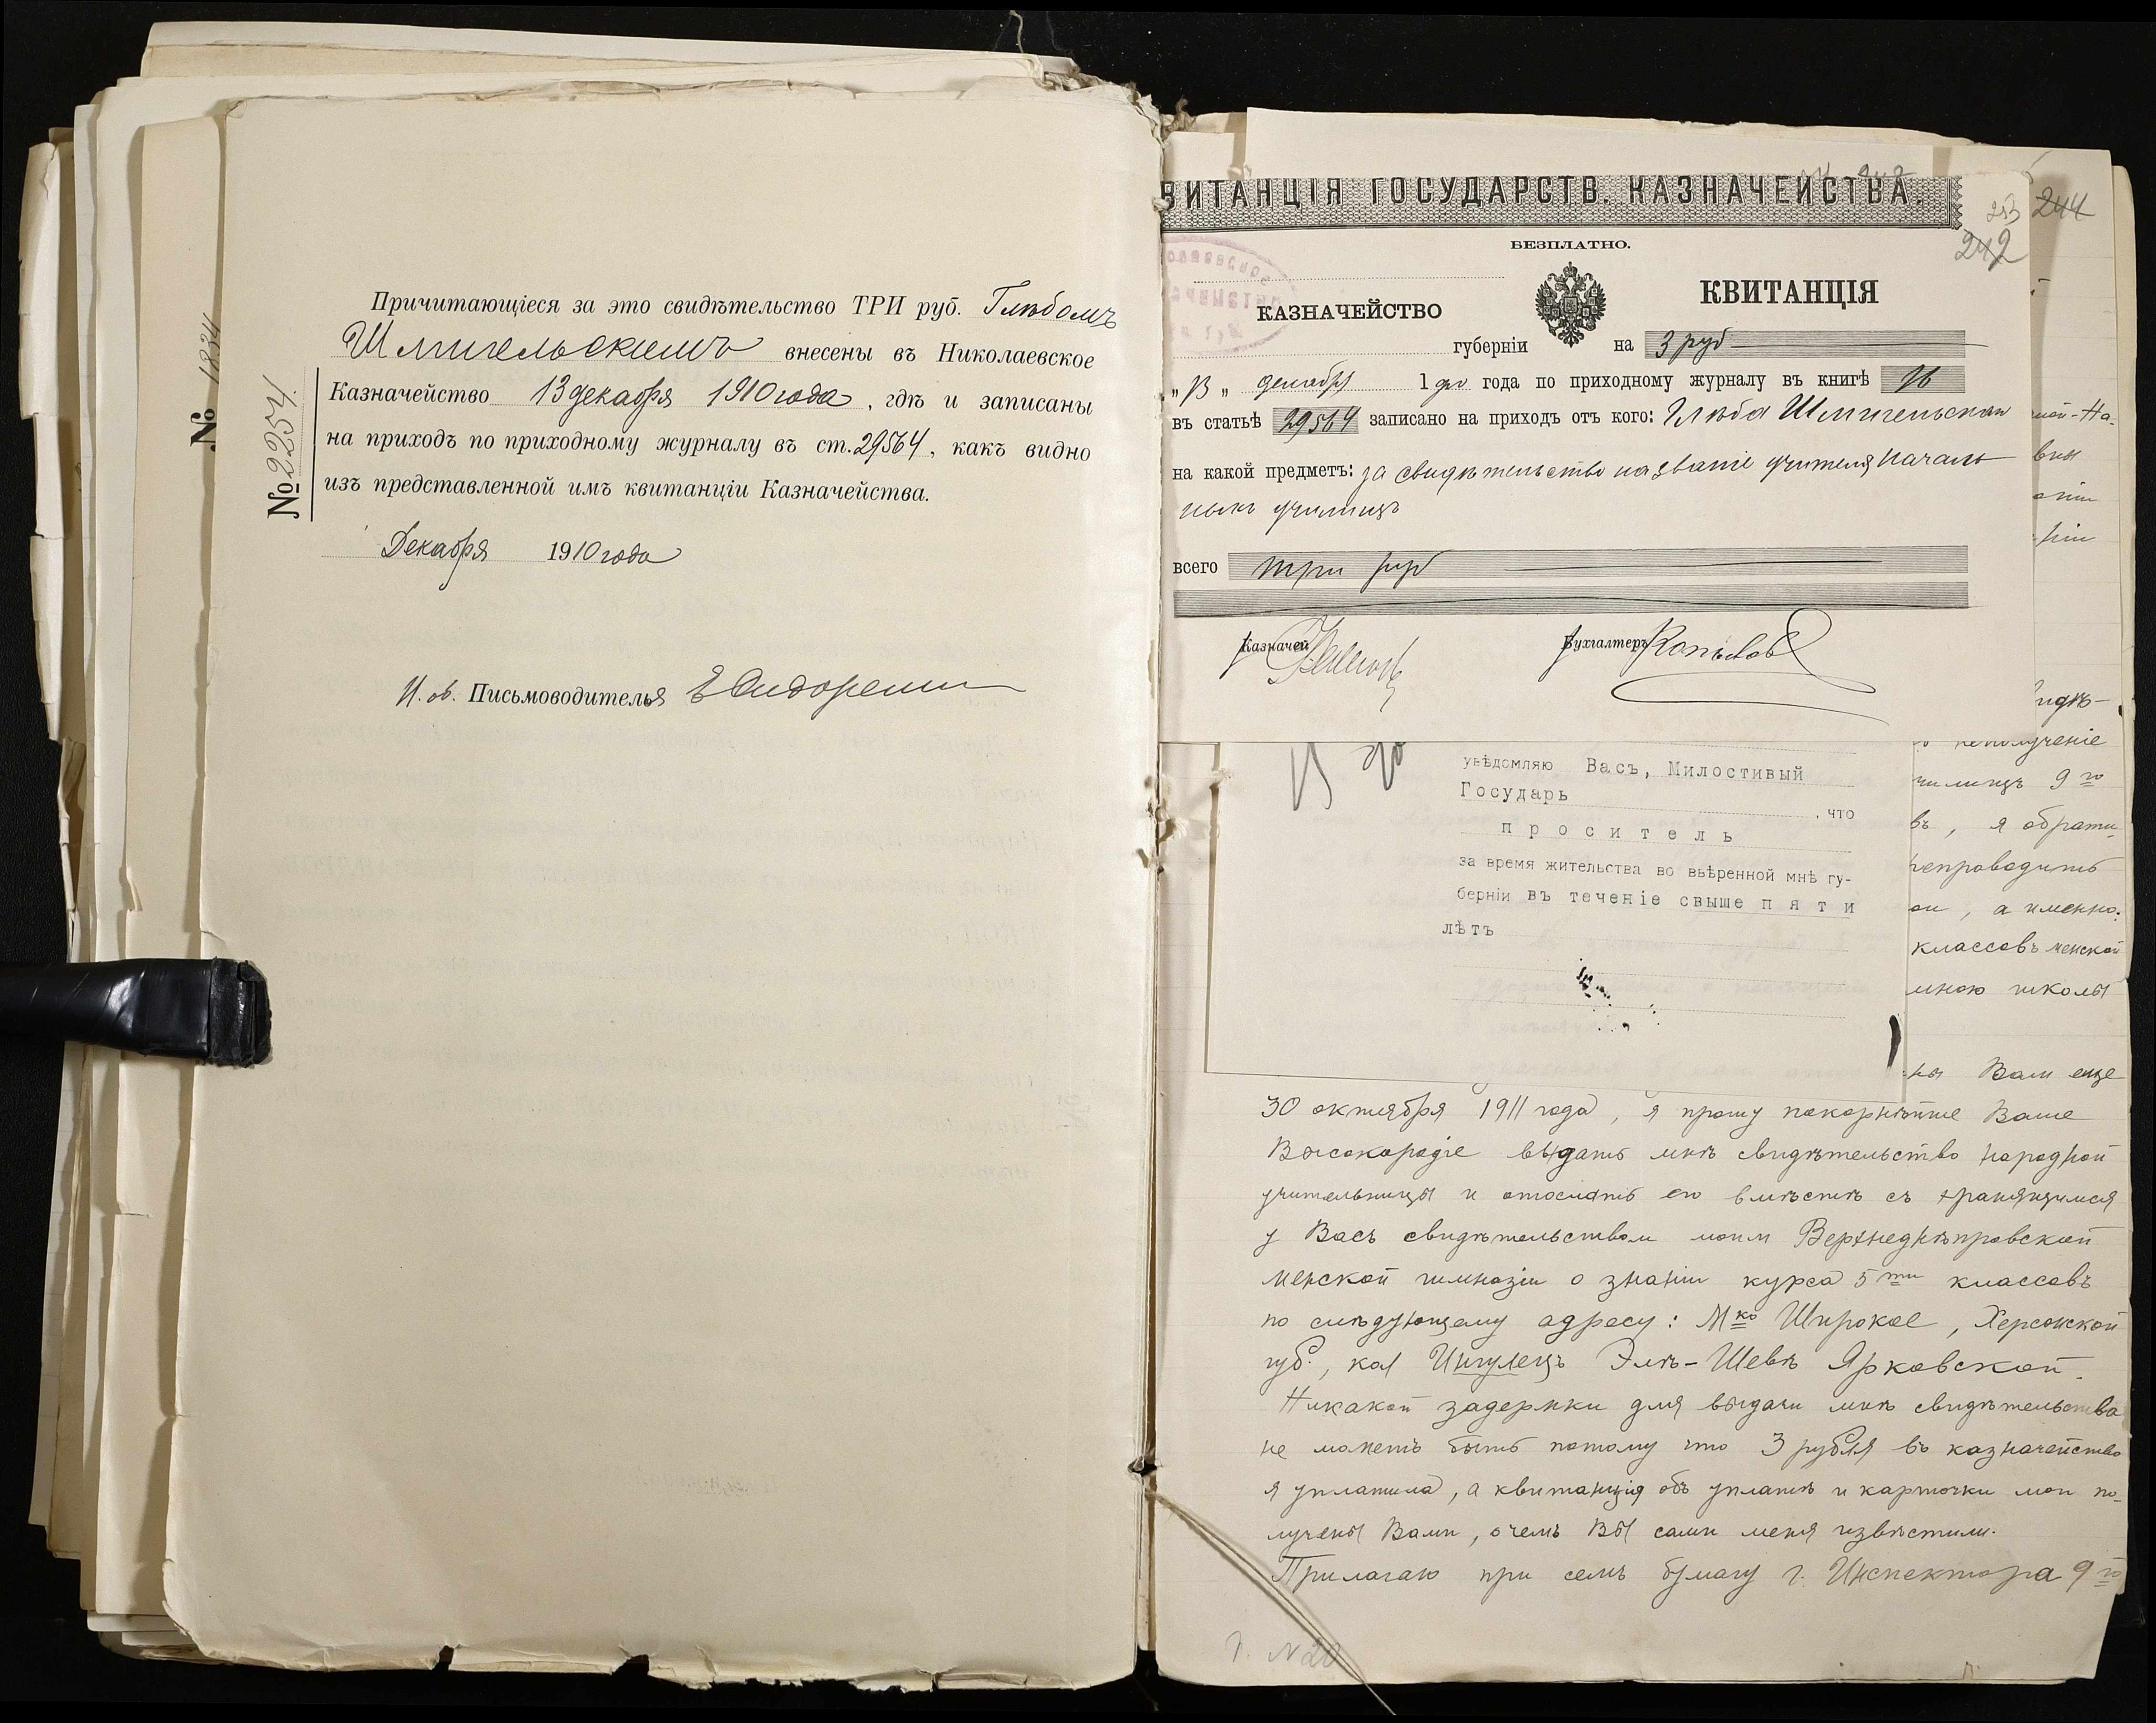 № 1834
№ 2254.
Причитающіеся за это свидѣтельство ТРИ руб. Глѣбомъ
Шмигельскимъ внесены въ Николаевское
Казначейство 13 декабря 1910 года, гдѣ и записаны
на приходъ по приходному журналу въ ст. 29564, какъ видно
изъ представленной имъ квитанціи Казначейства.
Декабря 1910 года
И. об. Письмоводителя
ВИТАНЦІЯ ГОСУДАРСТВ. КАЗНАЧЕЙСТВА.
244
242
БЕЗПЛАТНО.
КВИТАНЦІЯ
КАЗНАЧЕЙСТВО
губерніи на 3 руб
"13" декабря 1910 года по приходному журналу въ книгѣ
въ статьѣ 29564 записано на приходъ отъ кого: Глѣба Шмигельскаго
на какой предметъ: за свидѣтельство на званіе учителя началь
ныхъ училищъ
всего три руб
Казначей
Бухгалтеръ
увѣдомляю Васъ, Милостивый
Государь
, что
проситель
за время жительства во ввѣренной мнѣ гу-
берніи въ теченіе свыше пяти
лѣтъ
видѣ-
неполученіе
чилищъ 9го
въ, я обрати-
репроводить
ои, а именно:
классовъ женской
мною школы
ны Вам еще
30 октября 1911 года, я прошу покорнѣйше Ваше
Высокородіе выдать мнѣ свидѣтельство народной
учительницы и отослать его вмѣстѣ съ хранящимся
у Васъ свидѣтельством моим Верхнеднѣпровской
женской гимназіи о знаніи курса 5ти классовъ
по слѣдующему адресу: Мко Широкое, Херсонской
губ., кол Ингулецъ Элѣ-Шевѣ Ярковской.
Никакой задержки для выдачи мнѣ свидѣтельства
не можетъ быть потому что 3 рубля въ казначейство
я уплатила, а квитанція объ уплатѣ и карточки мои по-
лучены Вами, о чемъ Вы сами меня извѣстили.
Прилагаю при семъ бумагу г. Инспектора 9го
N 20